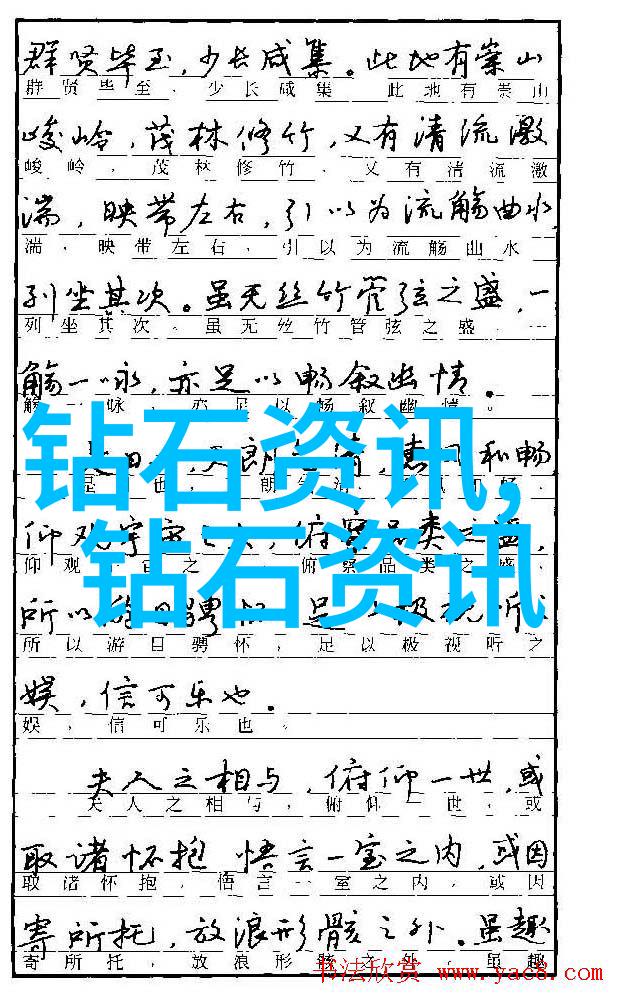 群贤毕至，少长咸集。此地有崇山
群贤毕至，少长咸集。此地有崇山
峻岭，茂林修竹，又有清流激
峻岭，茂林修竹，又有清流激
湍，映带左右，引以为流觞曲水，
湍，映带左右，引以为流觞曲水
列坐其次。虽无丝竹管弦之盛，一
列坐其次。虽无丝竹管弦之盛，一
觞一咏，亦足以畅叙幽情。
觞一咏，亦足以畅叙幽情。
钻石资讯,
是日 天朗 清，惠 和畅
是 也， 朗 清 畅
仰观宇宙之大，俯察品类之盛，
仰观 宙之 俯察品类之盛，
钻石资讯
所以游目骋怀 足 极视听
所以游目骋怀，足以极视听之
娱，信可乐也。
娱，信可乐也。
夫人之相与，俯仰一世，或
夫人之相与，俯仰一世，或
取诸怀抱 悟言一室之内，或因
取诸怀抱，悟言一室之内，或因
寄所托，放浪形骸之外。虽趣
寄所托，放浪形骸之外。虽趣
书法欣赏 www.yac8.com